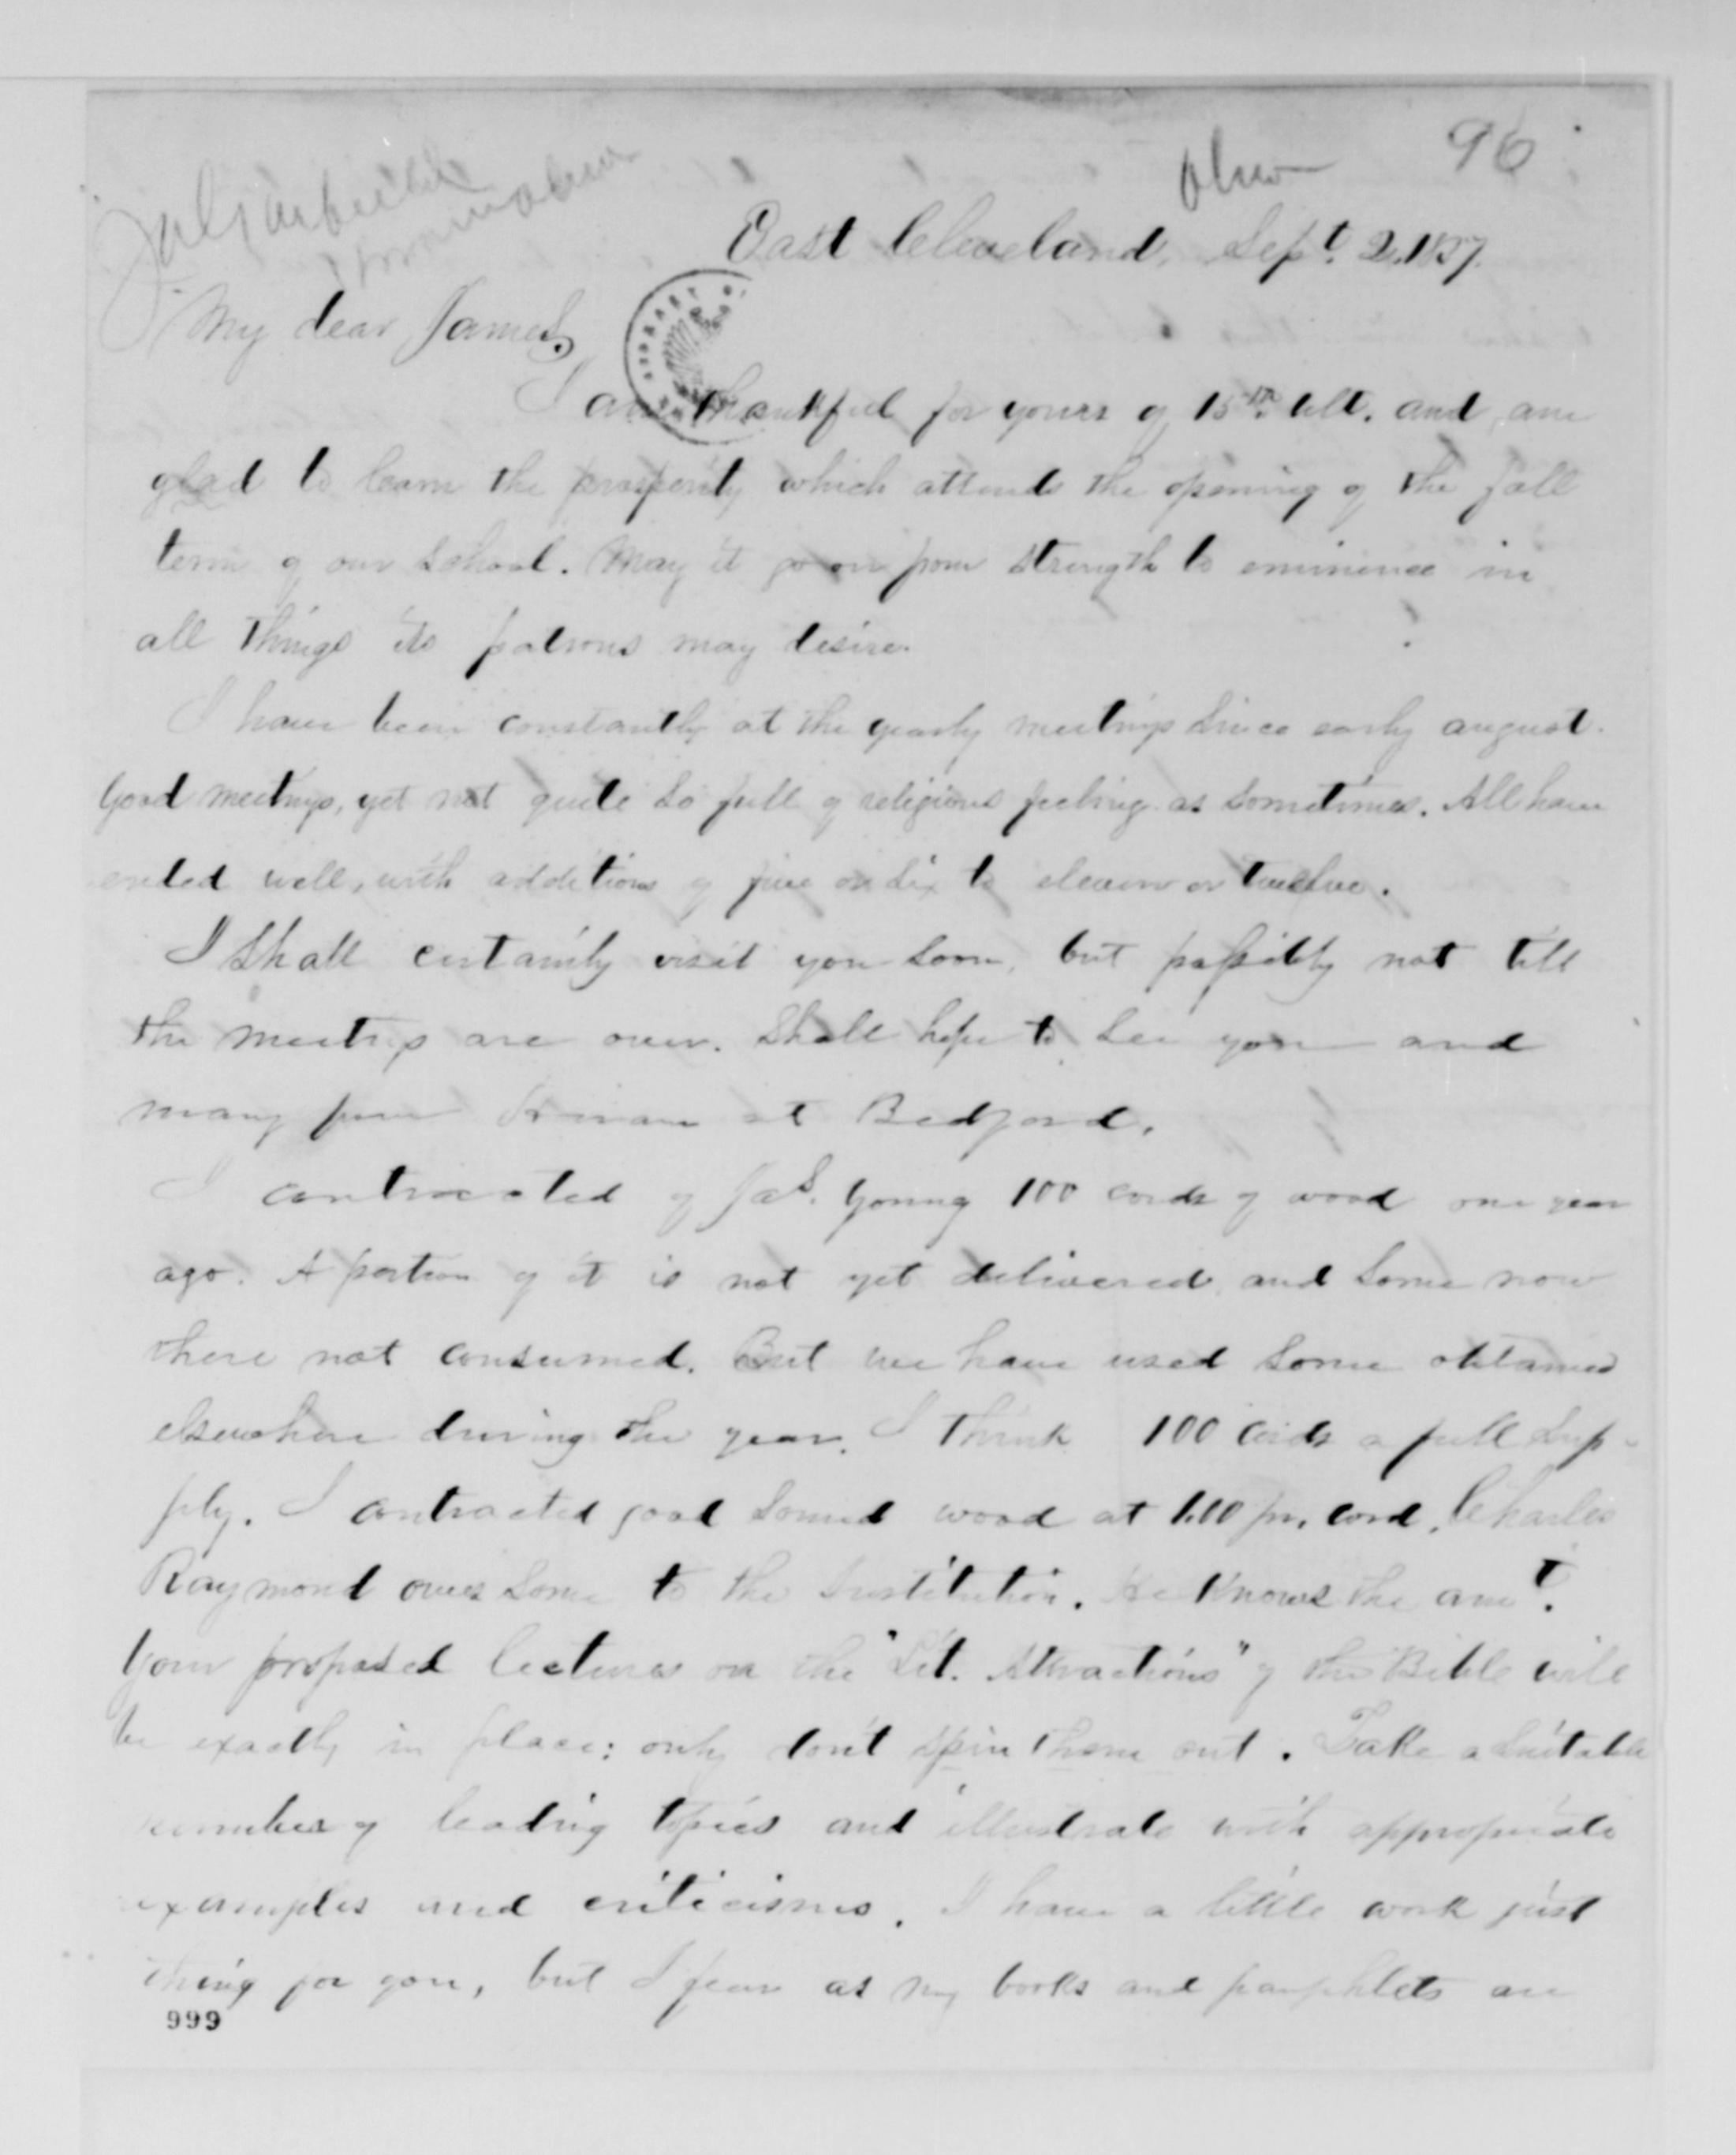 96
Ohio
East Cleveland, Sept. 2, 1857.
My dear James,
I am thankful for yours of 15th ult. and am
glad to learn the prosperity which attends the opening of the fall
term of our School. May it go on from strength to eminence in
all things its patrons may desire.
I have been constantly at the yearly meetings since early august.
Good meetings, yet not quite so full of religious feeling as sometimes. All have
ended well, with additions of five or six to eleven or twelve.
I shall certainly visit you soon, but possibly not till
the meetings are over. Shall hope to see you and
many from Hiram at Bedford.
I contracted of Jas. Young 100 cords of wood one year
ago. A portion of it is not yet delivered, and some now
there not consumed. But we have used some obtained
elsewhere during the year. I think 100 cords a full sup-
ply. I contracted good sound wood at 1.10 pr. cord. Charles
Raymond owes some to the Institution. He knows the amt.
Your proposed lectures on the "Lit. Attractions" of the Bible will
be exactly in place: only don't spin them out. Take a suitable
number of leading topics and illustrate with appropriate
examples and criticisms. I have a little work just
thing for you, but I fear as my books and pamphlets are
999